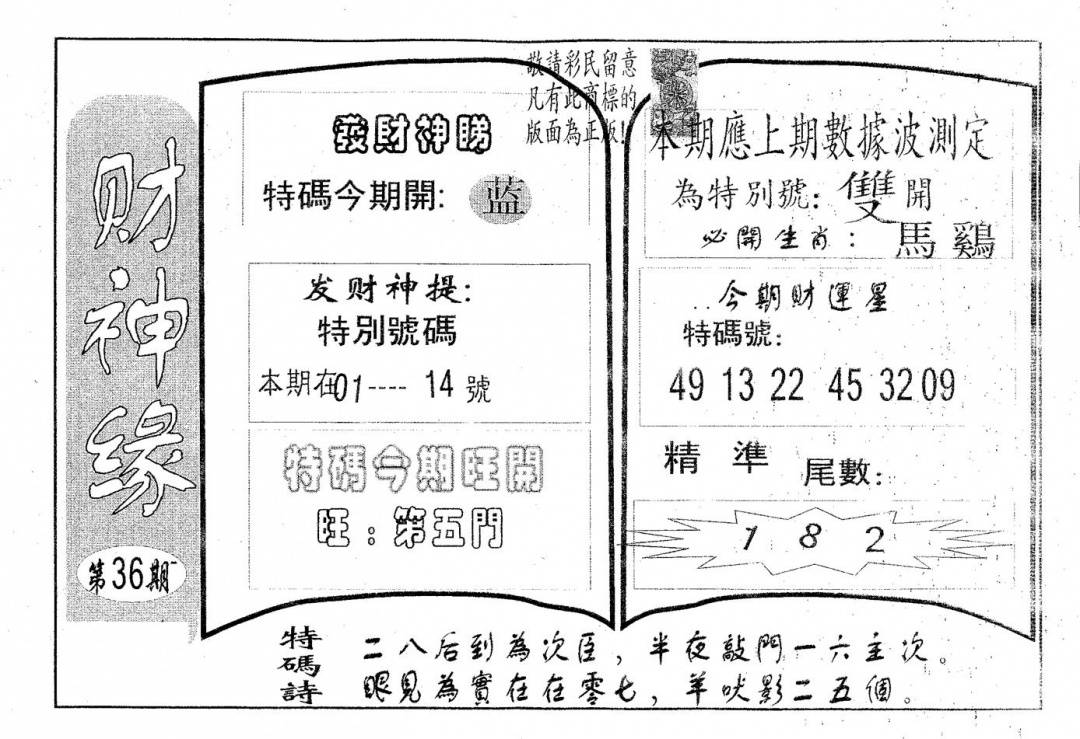 财神缘
第36期
敬請彩民留意
凡有此商標的
版面為正版!
發財神睇
特碼今期開: 蓝
发财神提:
特別號碼
本期在01----14號
特碼今期旺開
旺:第五門
本期應上期數據波測定
為特別號: 雙開
必開生肖: 馬鷄
今期財運星
特碼號:
49 13 22 45 32 09
精準
尾數:
1 8 2
特碼詩
二八后到為次臣,半夜敲門一六主次。
眼見為實在在零七,羊吠影二五個。